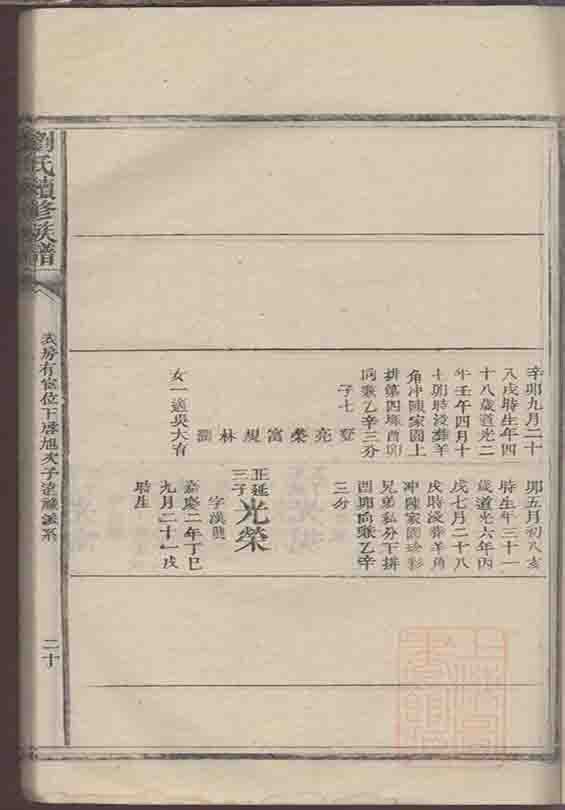 劉氏續修族譜
二十
辛卯九月二十
八戌時生年四
十八歲道光二
年壬午四月十
七卯時沒葬羊
角冲陳家園上
排第四塚酉卯
向兼乙辛三分
子七
登亮榮富規林潤
女一適吳大有
卯五月初八亥
時生年三十一
歲道光六年丙
戌七月二十八
戌時沒葬羊角
冲陳家園珍彩
兄弟私分下排
酉卯向兼乙辛
三分
正延三子
光榮
字漢興
嘉慶二年丁巳
九月二十一戌
時生